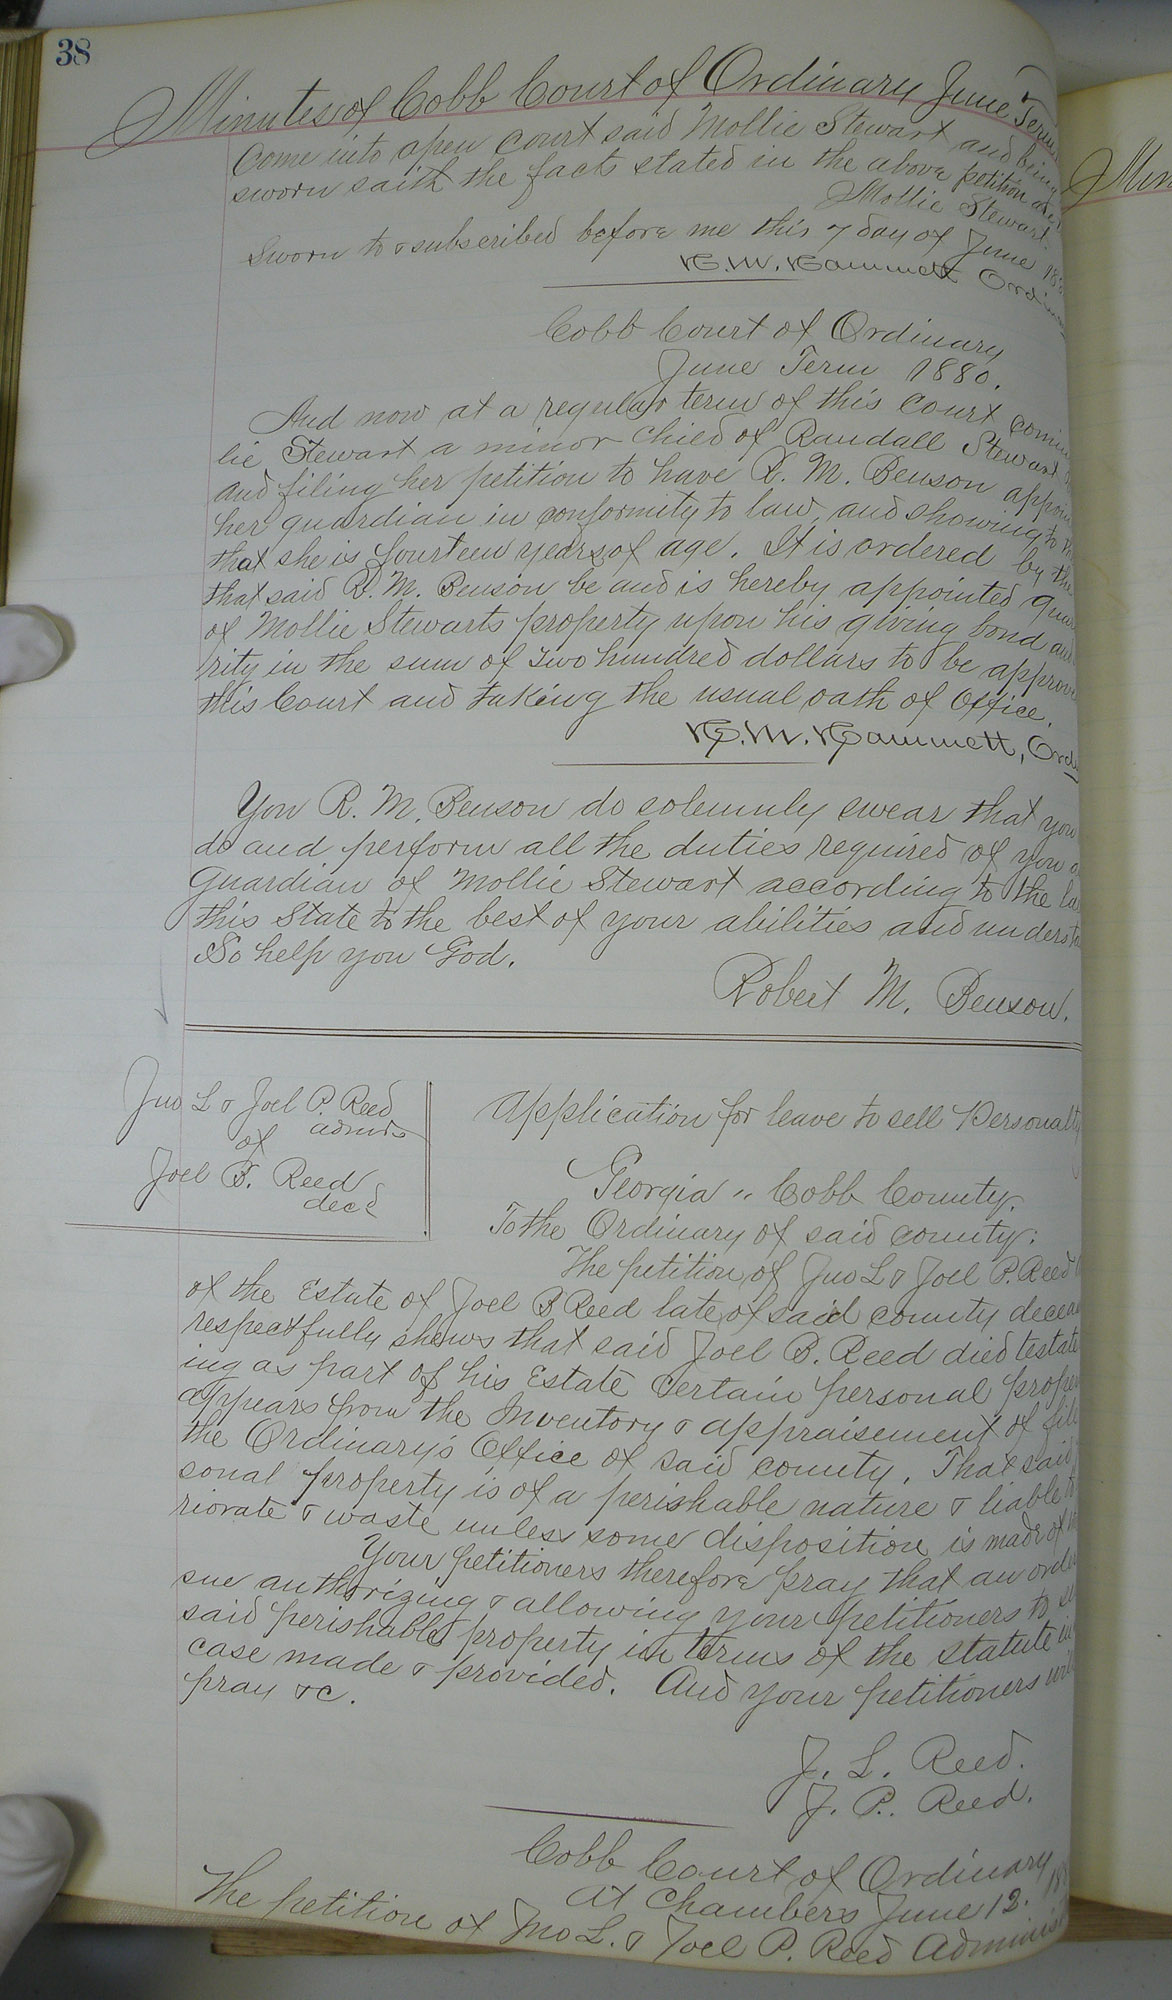 38
Minutes of Cobb Court of Ordinary June Term
Come into open Court said Mollie Stewart and being
sworn saith the facts stated in the above petition are
Mollie Stewart.
Sworn to & subscribed before me this 7 day of June 188
H. M. Hammett Ordin
Cobb Court of Ordinary
June Term 1880.
And now at a regular term of this Court
lie Stewart a minor child of Randall Stewart
and filing her petition to have R. M. Benson appoin
her guardian in conformity to law, and showing to
that she is fourteen years of age. It is ordered by the
that said R. M. Benson be and is hereby appointed guar
of Mollie Stewarts property upon his giving bond and
rity in the sum of two hundred dollars to be approve
this Court and taking the usual oath of office.
H. M. Hammett, Ordy
You R. M. Benson do solemnly swear that you
do and perform all the duties required of you
Guardian of Mollie Stewart according to the la
this State to the best of your abilities and understa
So help you God.
Robert M. Benson.
Jno L & Joel P. Reed
admrs
of
Joel B. Reed
decd
Application for leave to sell Personalty
Georgia " Cobb County.
To the Ordinary of said county:
The petition of Jno L & Joel P. Reed
of the Estate of Joel B Reed late of said county deceas
respectfully shows that said Joel B. Reed died testate
ing as part of his Estate certain personal proper
appears from the Inventory & appraisement of file
the Ordinary's Office of said county. That said
sonal property is of a perishable nature & liable to
riorate & waste unless some disposition is made of
Your petitioners therefore pray that an order
sue authorizing & allowing your petitioners to
said perishable property in terms of the statute in
case made & provided. And your petitioners will
pray &c.
J. L. Reed.
J. P. Reed.
Cobb Court of Ordinary
At Chambers June 12. 18
The petition of Jno L. & Joel P. Reed Adminis
Min